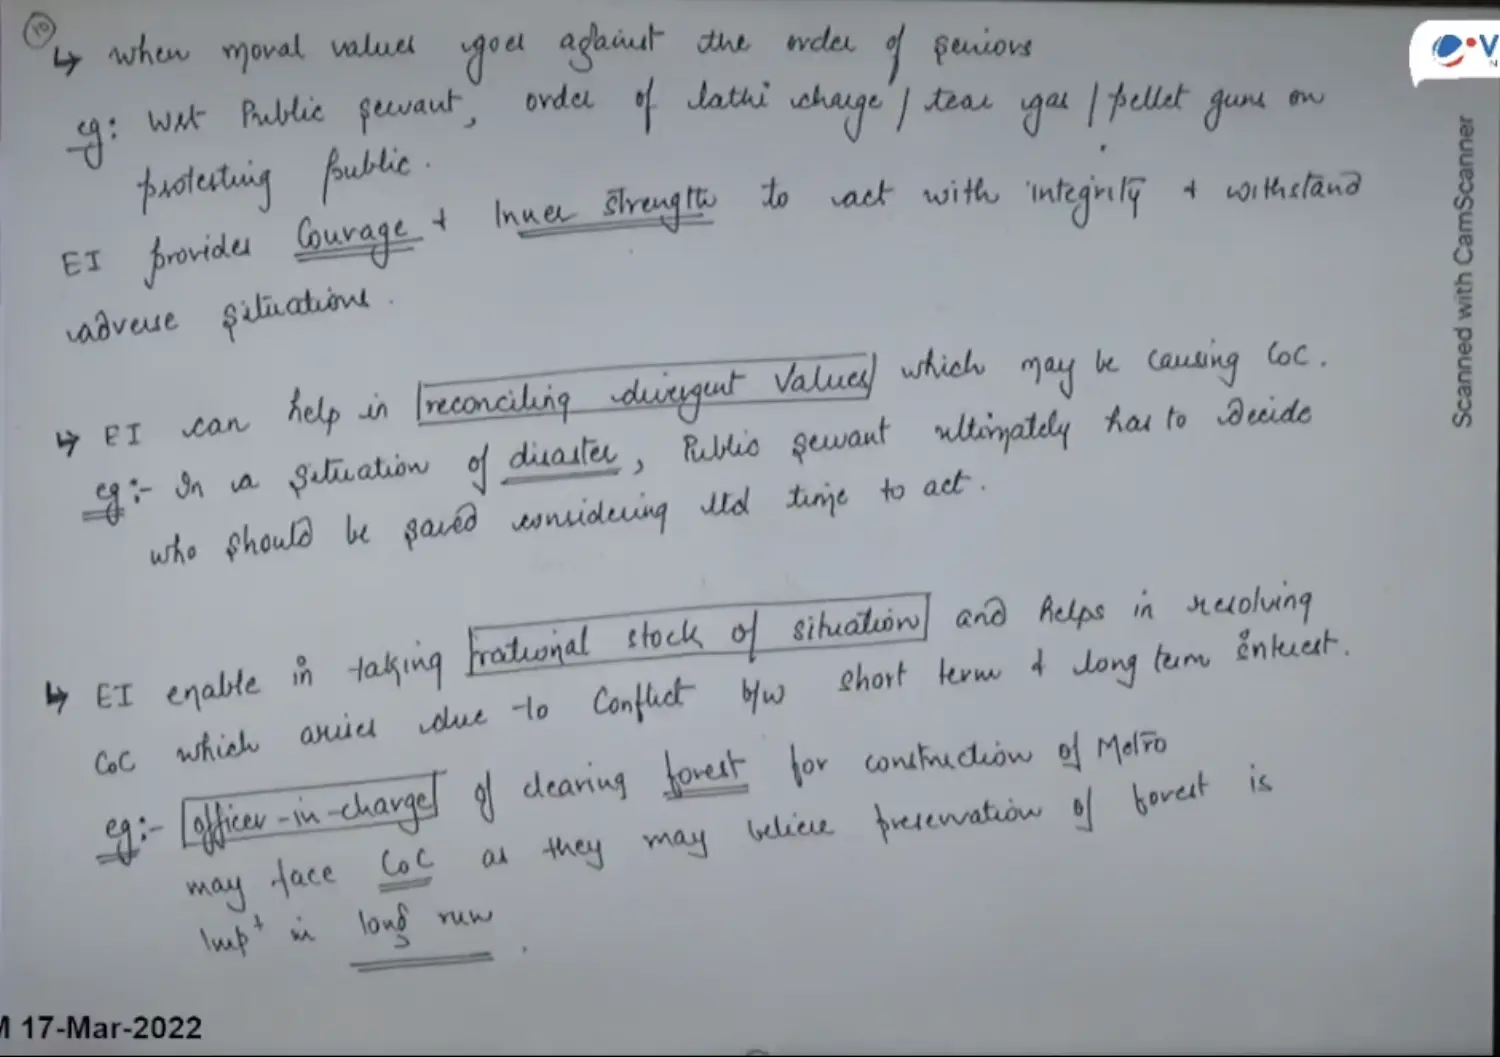 10
↳ when moral values goes against the order of seniors
eg: Wrt Public servant, order of lathi charge / tear gas / pellet guns on
protesting public.
EI provides Courage + Inner strength to act with integrity & withstand
adverse situations.
↳ EI can help in reconciling divergent values which may be causing CoC.
eg:- In a situation of disaster, Public servant ultimately has to decide
who should be saved considering ltd time to act.
↳ EI enable in taking rational stock of situation and helps in resolving
CoC which arises due to Conflict b/w short term & long term interest.
eg:- officer-in-charge of clearing forest for construction of Metro
may face CoC as they may believe preservation of forest is
Impt in long run.
17-Mar-2022
Scanned with CamScanner
V
N